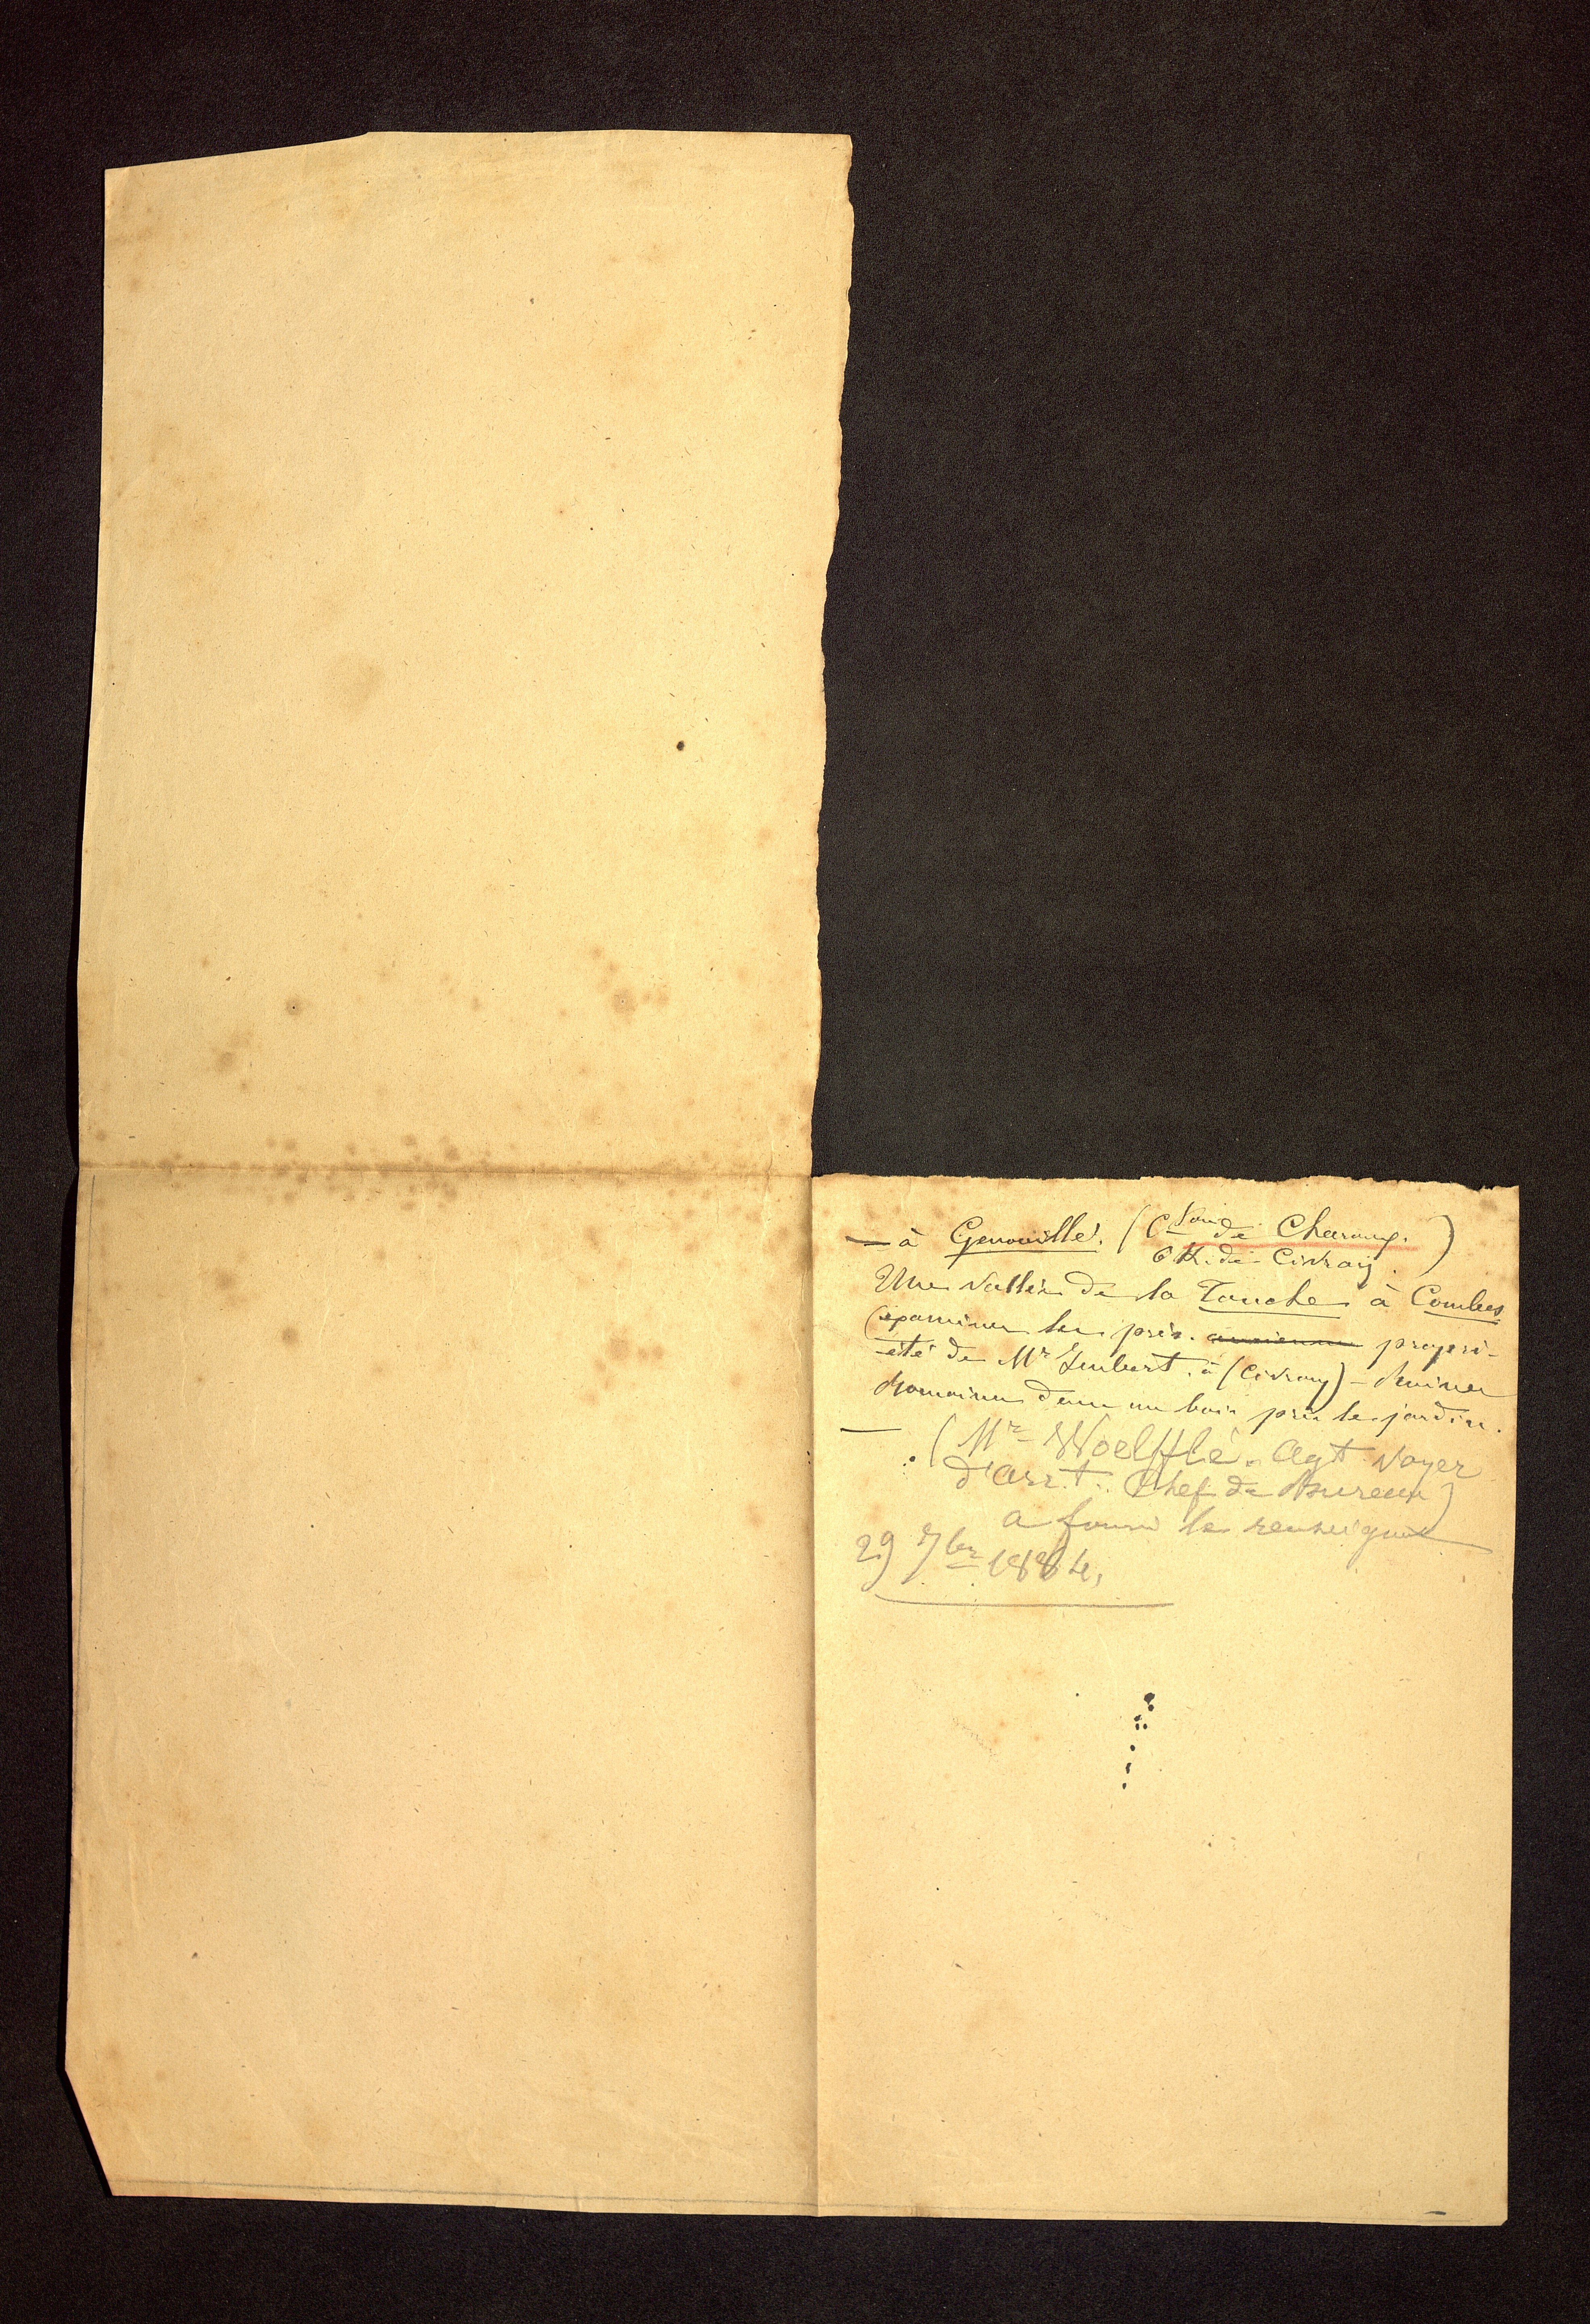 — à Genouillé. (Con de Charoux.)
6 K. de Civray.
Une vallée de la Touche à Combes
(examiner les près. ancienne propri-
été de Mr Imbert. à (Civray) - Ruines
Romaines dans un bois près le jardin.
— . (Mr Woelfflé. Agt voyer
d'arr.t. Chef de Bureau)
a fourni le renseignt
29 7bre 1884.